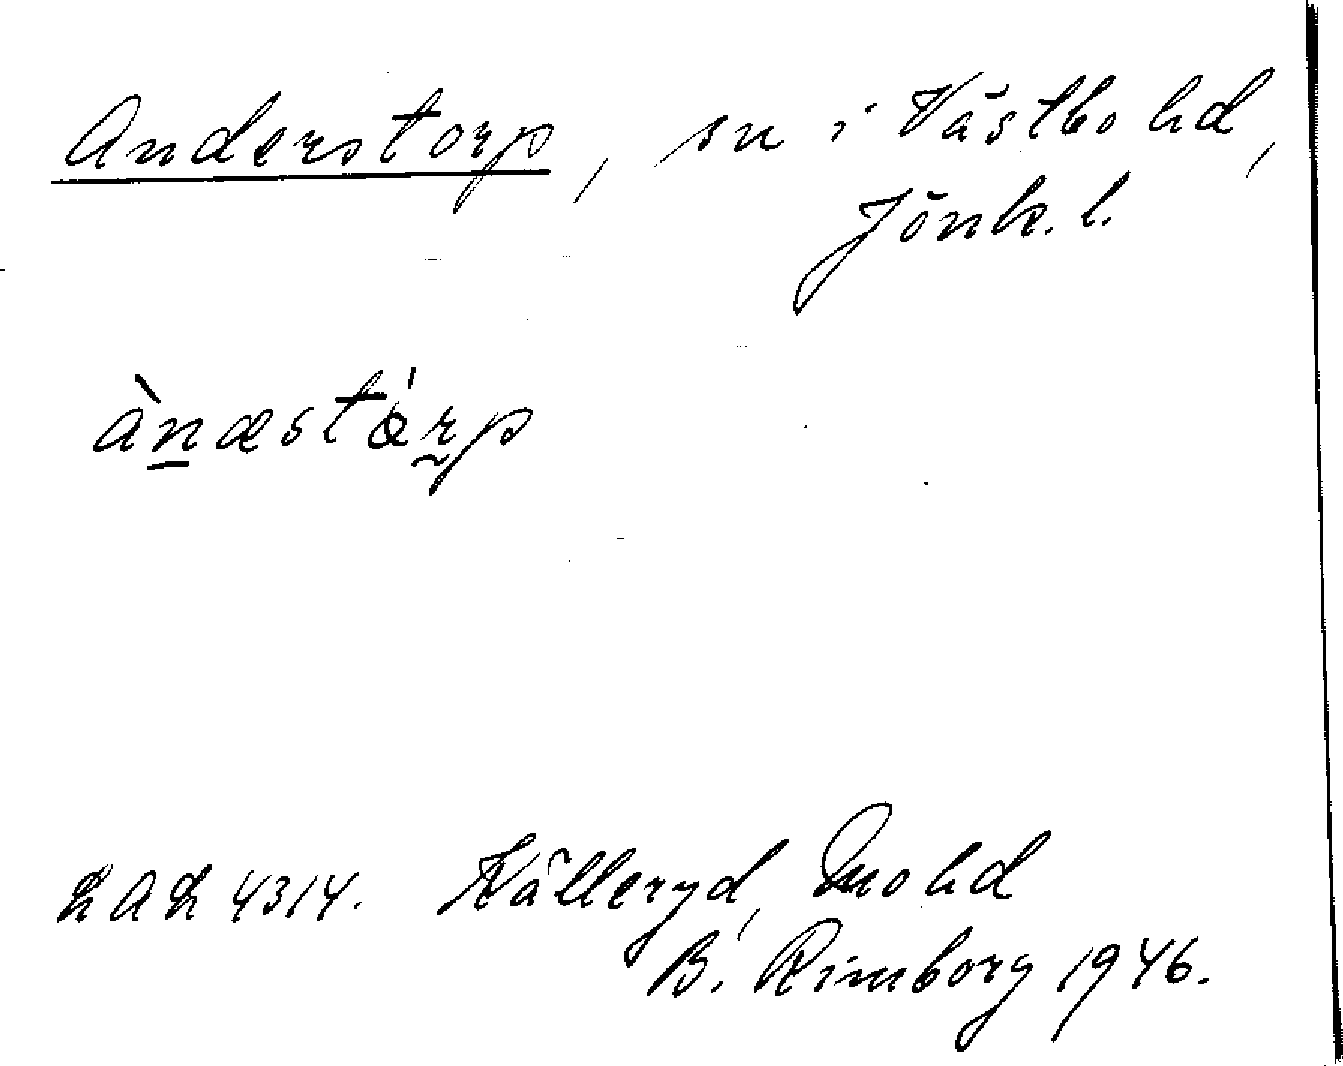 Anderstorp, sn i Västbo hd,
Jönk. l.
ànæstǻrp
LAL 4314. Källeryd, Mo hd
B. Rimborg 1946.